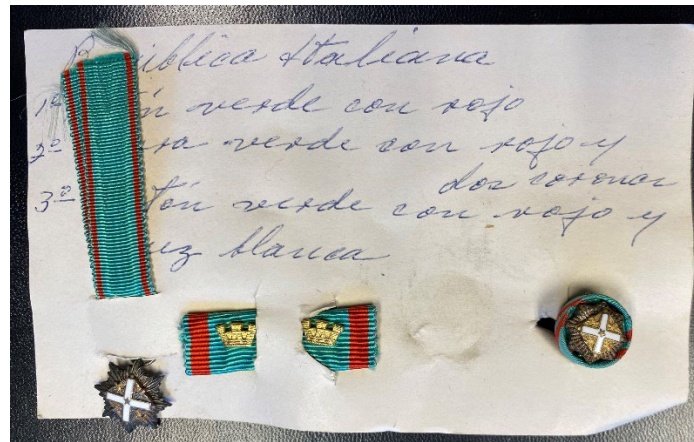 República Italiana
1º n verde con rojo
2º ra verde con rojo y
dos coronas
3º tón verde con rojo y
uz blanca